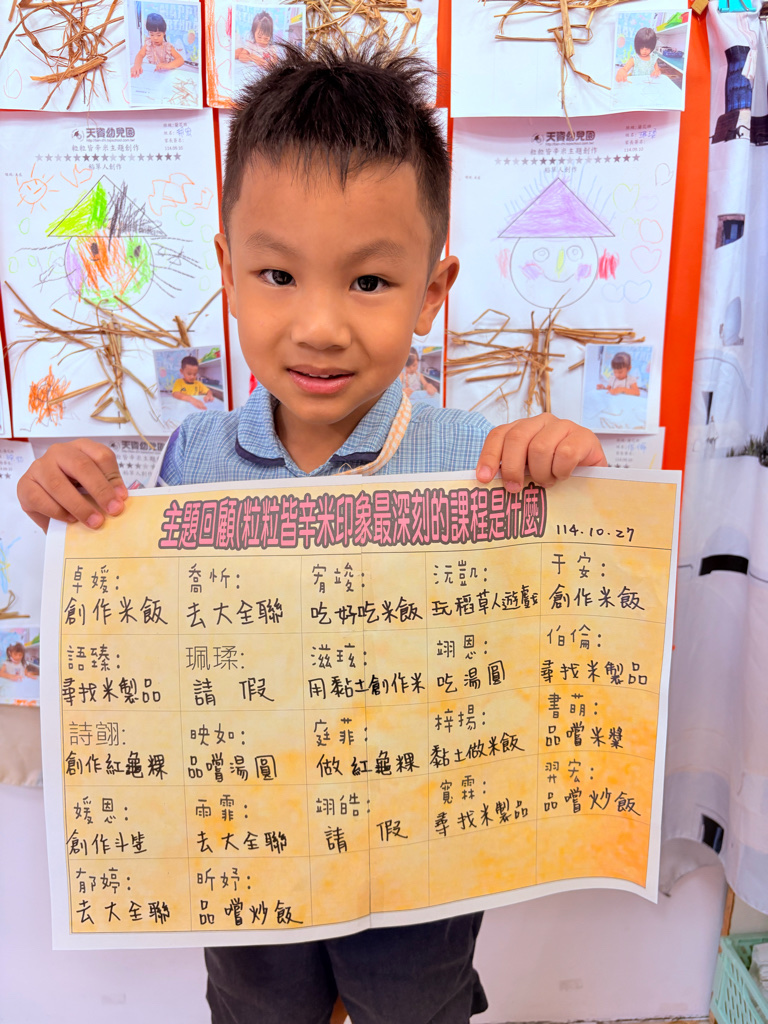 天資幼兒園
粒粒皆辛米主題創作
稻草人創作
114.09.10
天資幼兒園
粒粒皆辛米主題創作
稻草人創作
天資幼兒園
主題回顧(粒粒皆辛米印象最深刻的課程是什麼) 114.10.27
卓媛:
創作米飯
喬忻:
去大全聯
宥竣:
吃好吃米飯
沅凱:
玩稻草人遊戲
于安:
創作米飯
語臻:
尋找米製品
珮瑈:
請 假
滋玹:
用黏土創作米
翊恩:
吃湯圓
伯倫:
尋找米製品
詩翩:
創作紅龜粿
映如:
品嚐湯圓
庭菲:
做紅龜粿
梓揚:
黏土做米飯
書萌:
品嚐米漿
媛恩:
創作斗笠
雨霏:
去大全聯
翊皓:
請 假
寬霖:
尋找米製品
羿宏:
品嚐炒飯
郁婷:
去大全聯
昕妤:
品嚐炒飯